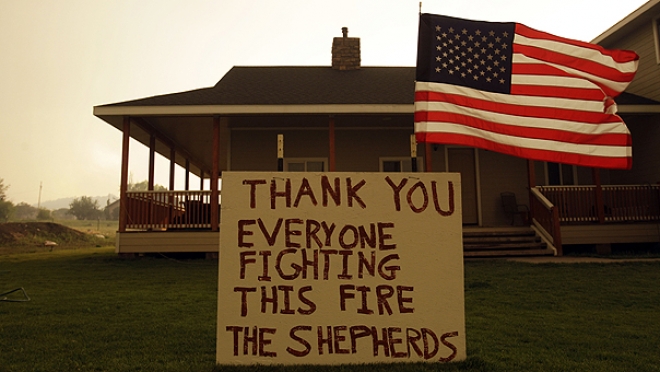 THANK YOU
EVERYONE
FIGHTING
THIS FIRE
THE SHEPHERDS